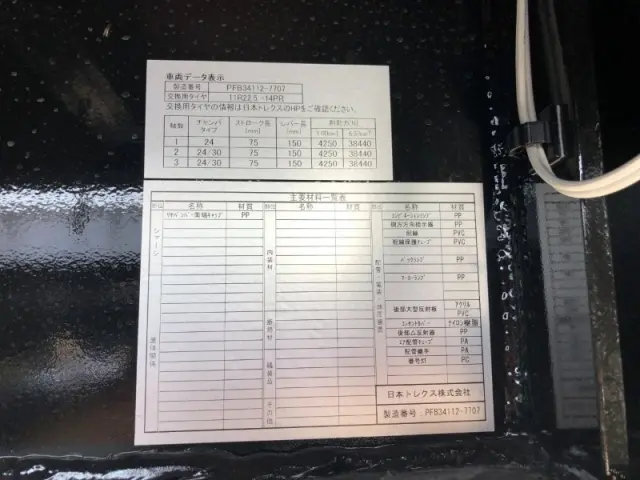 車両データ表示
製造番号 PFB34112-7707
交換用タイヤ 11R22.5 -14PR
交換用タイヤの情報は日本トレクスのHPをご確認ください。
軸数 チャンバタイプ ストローク長[mm] レバー長[mm] 制動力[N]
1 24 75 150 4250 38440
2 24/30 75 150 4250 38440
3 24/30 75 150 4250 38440
主要材料一覧表
部位 名称 材質 部位 名称 材質 部位 名称 材質
シャーシ
PP
内装材
PP
側方方向指示器 PP
配線 PVC
配線保護チューブ PVC
PP
PP
断熱材
後部大型反射板 アクリル
PVC
ナイロン樹脂
後部反射器 PP
エア配管チューブ PA
配管継手 PA
番号灯 PC
その他
日本トレクス株式会社
製造番号.PFB34112-7707